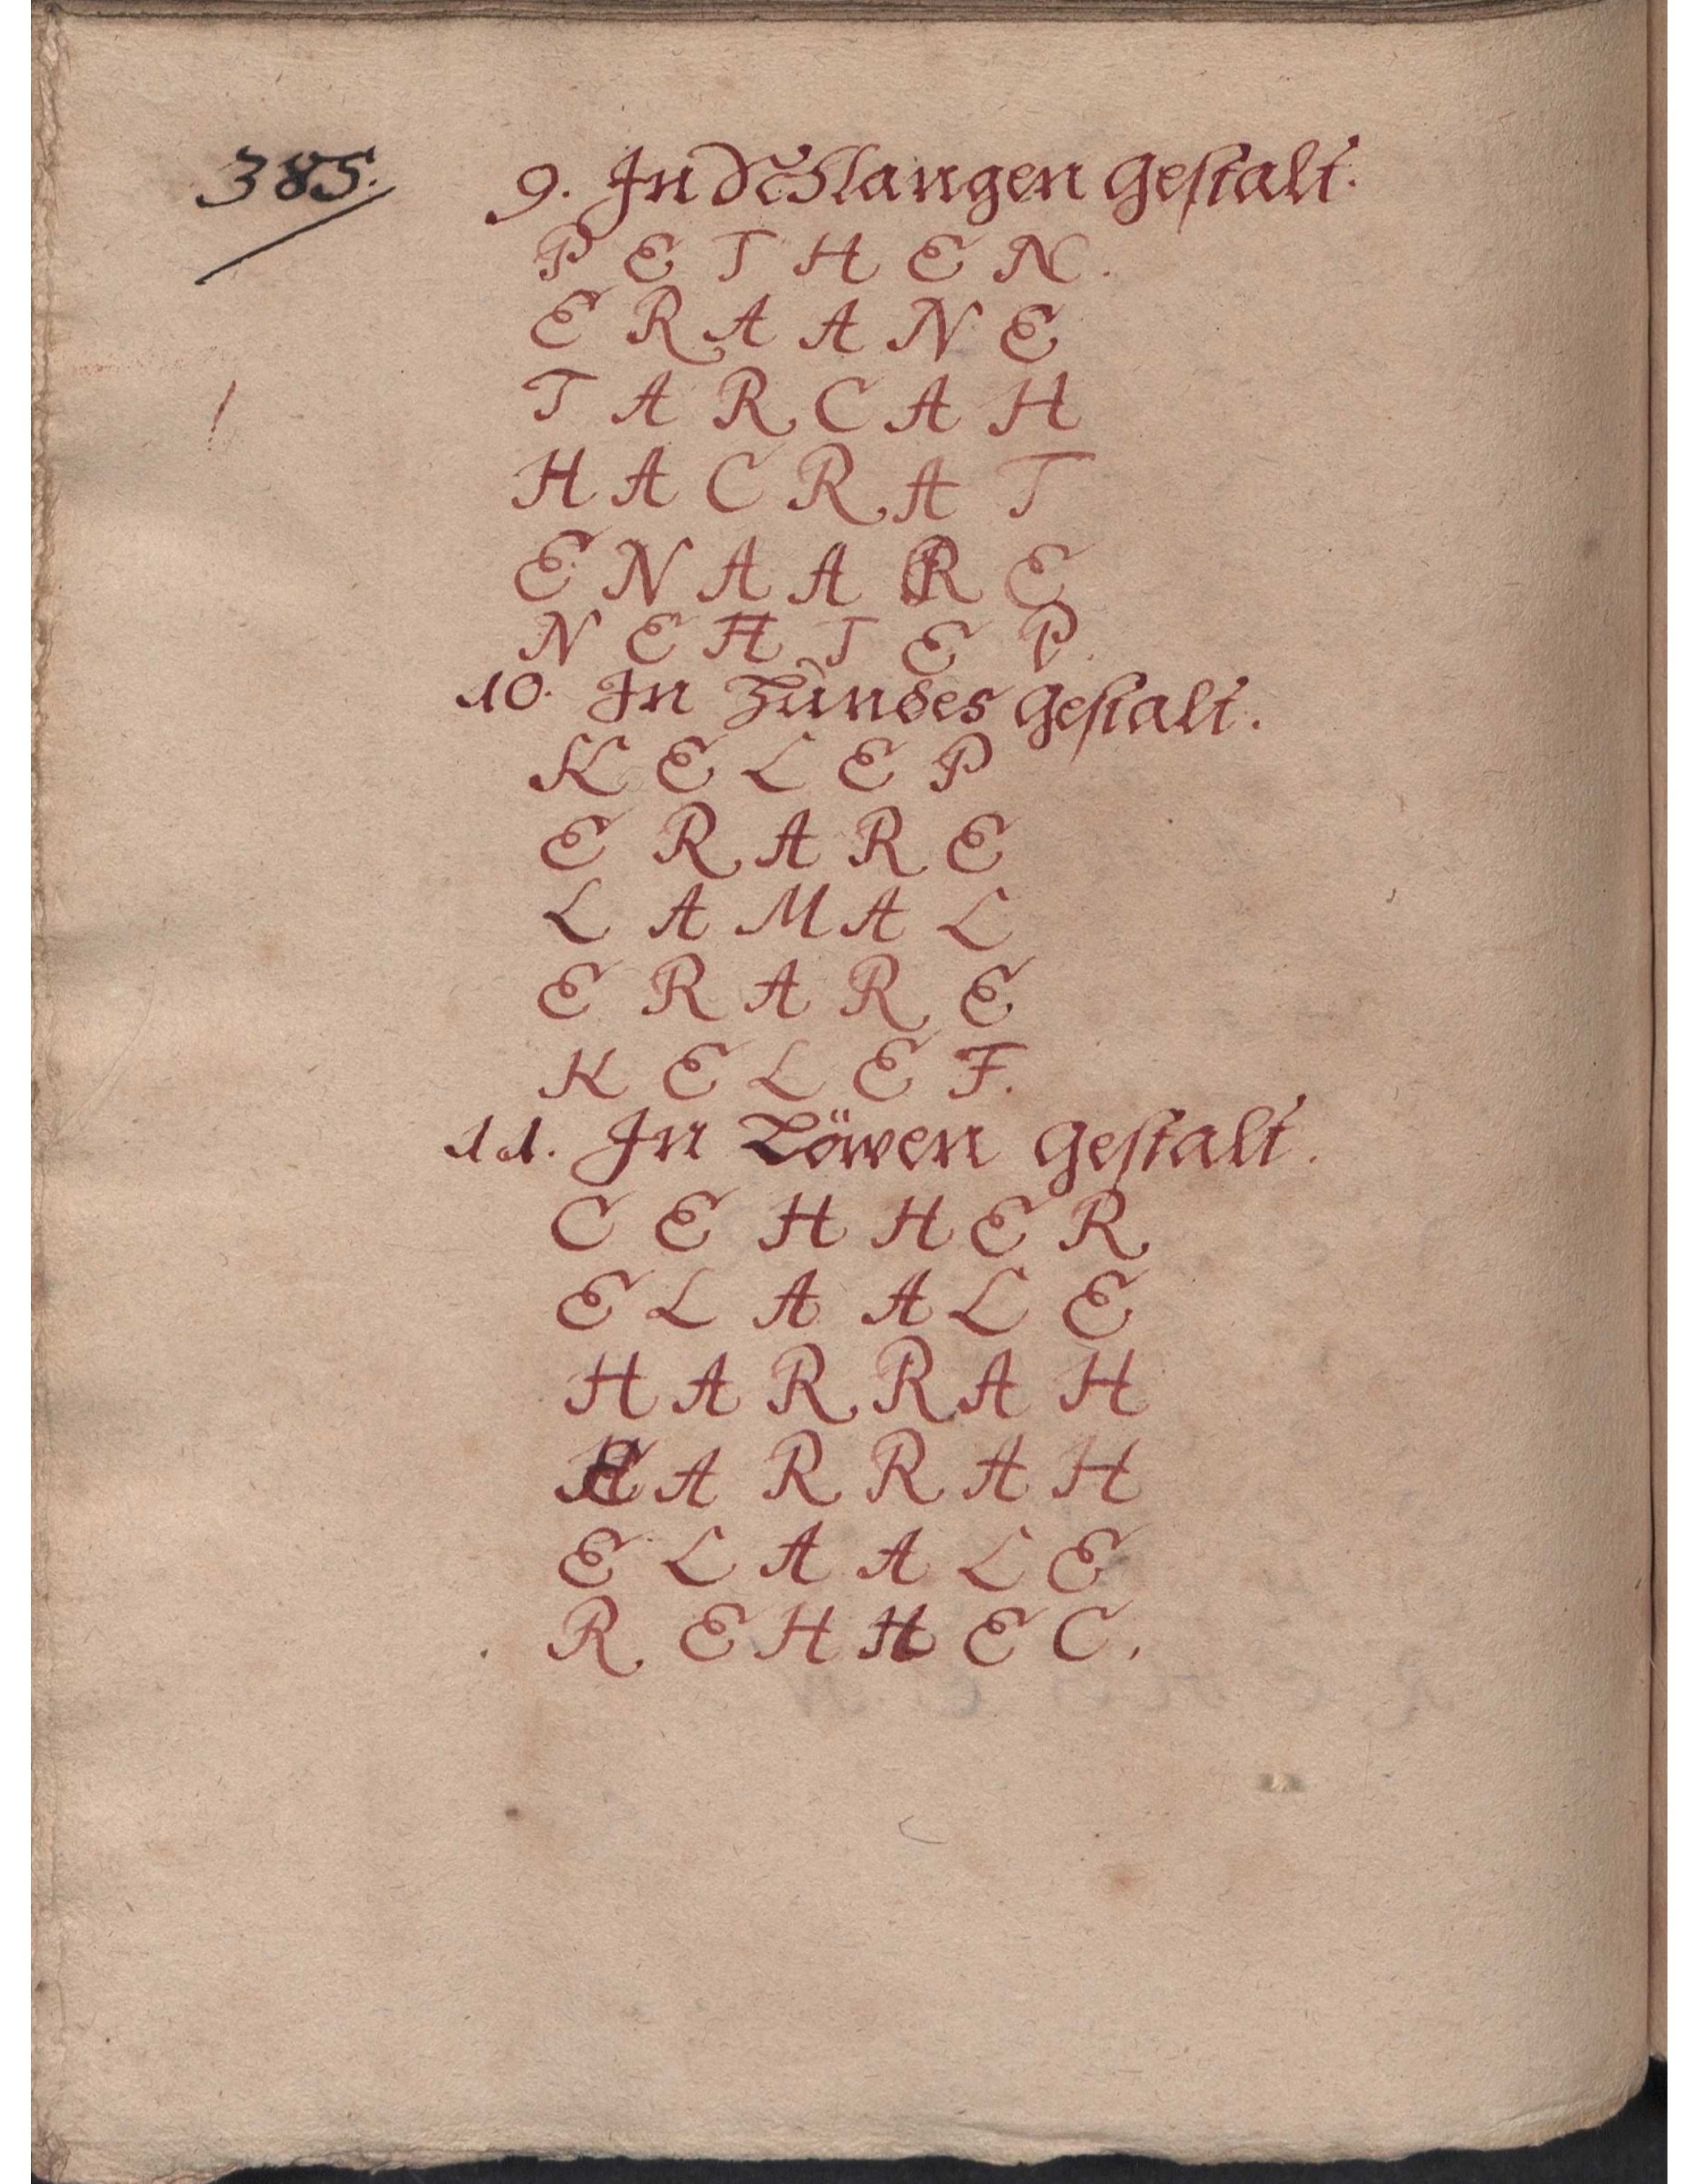 385.
9. In Schlangen Gestalt.
P E T H E N.
E R A A N E
T A R C A H
H A C R A T
E N A A R E
N E H T E P.
10. In Hundes Gestalt.
K E L E P
E R A R E
L A M A L
E R A R E
K E L E F.
11. In Löwen Gestalt.
C E H H E R
E L A A L E
H A R R A H
H A R R A H
E L A A L E
R E H H E C.